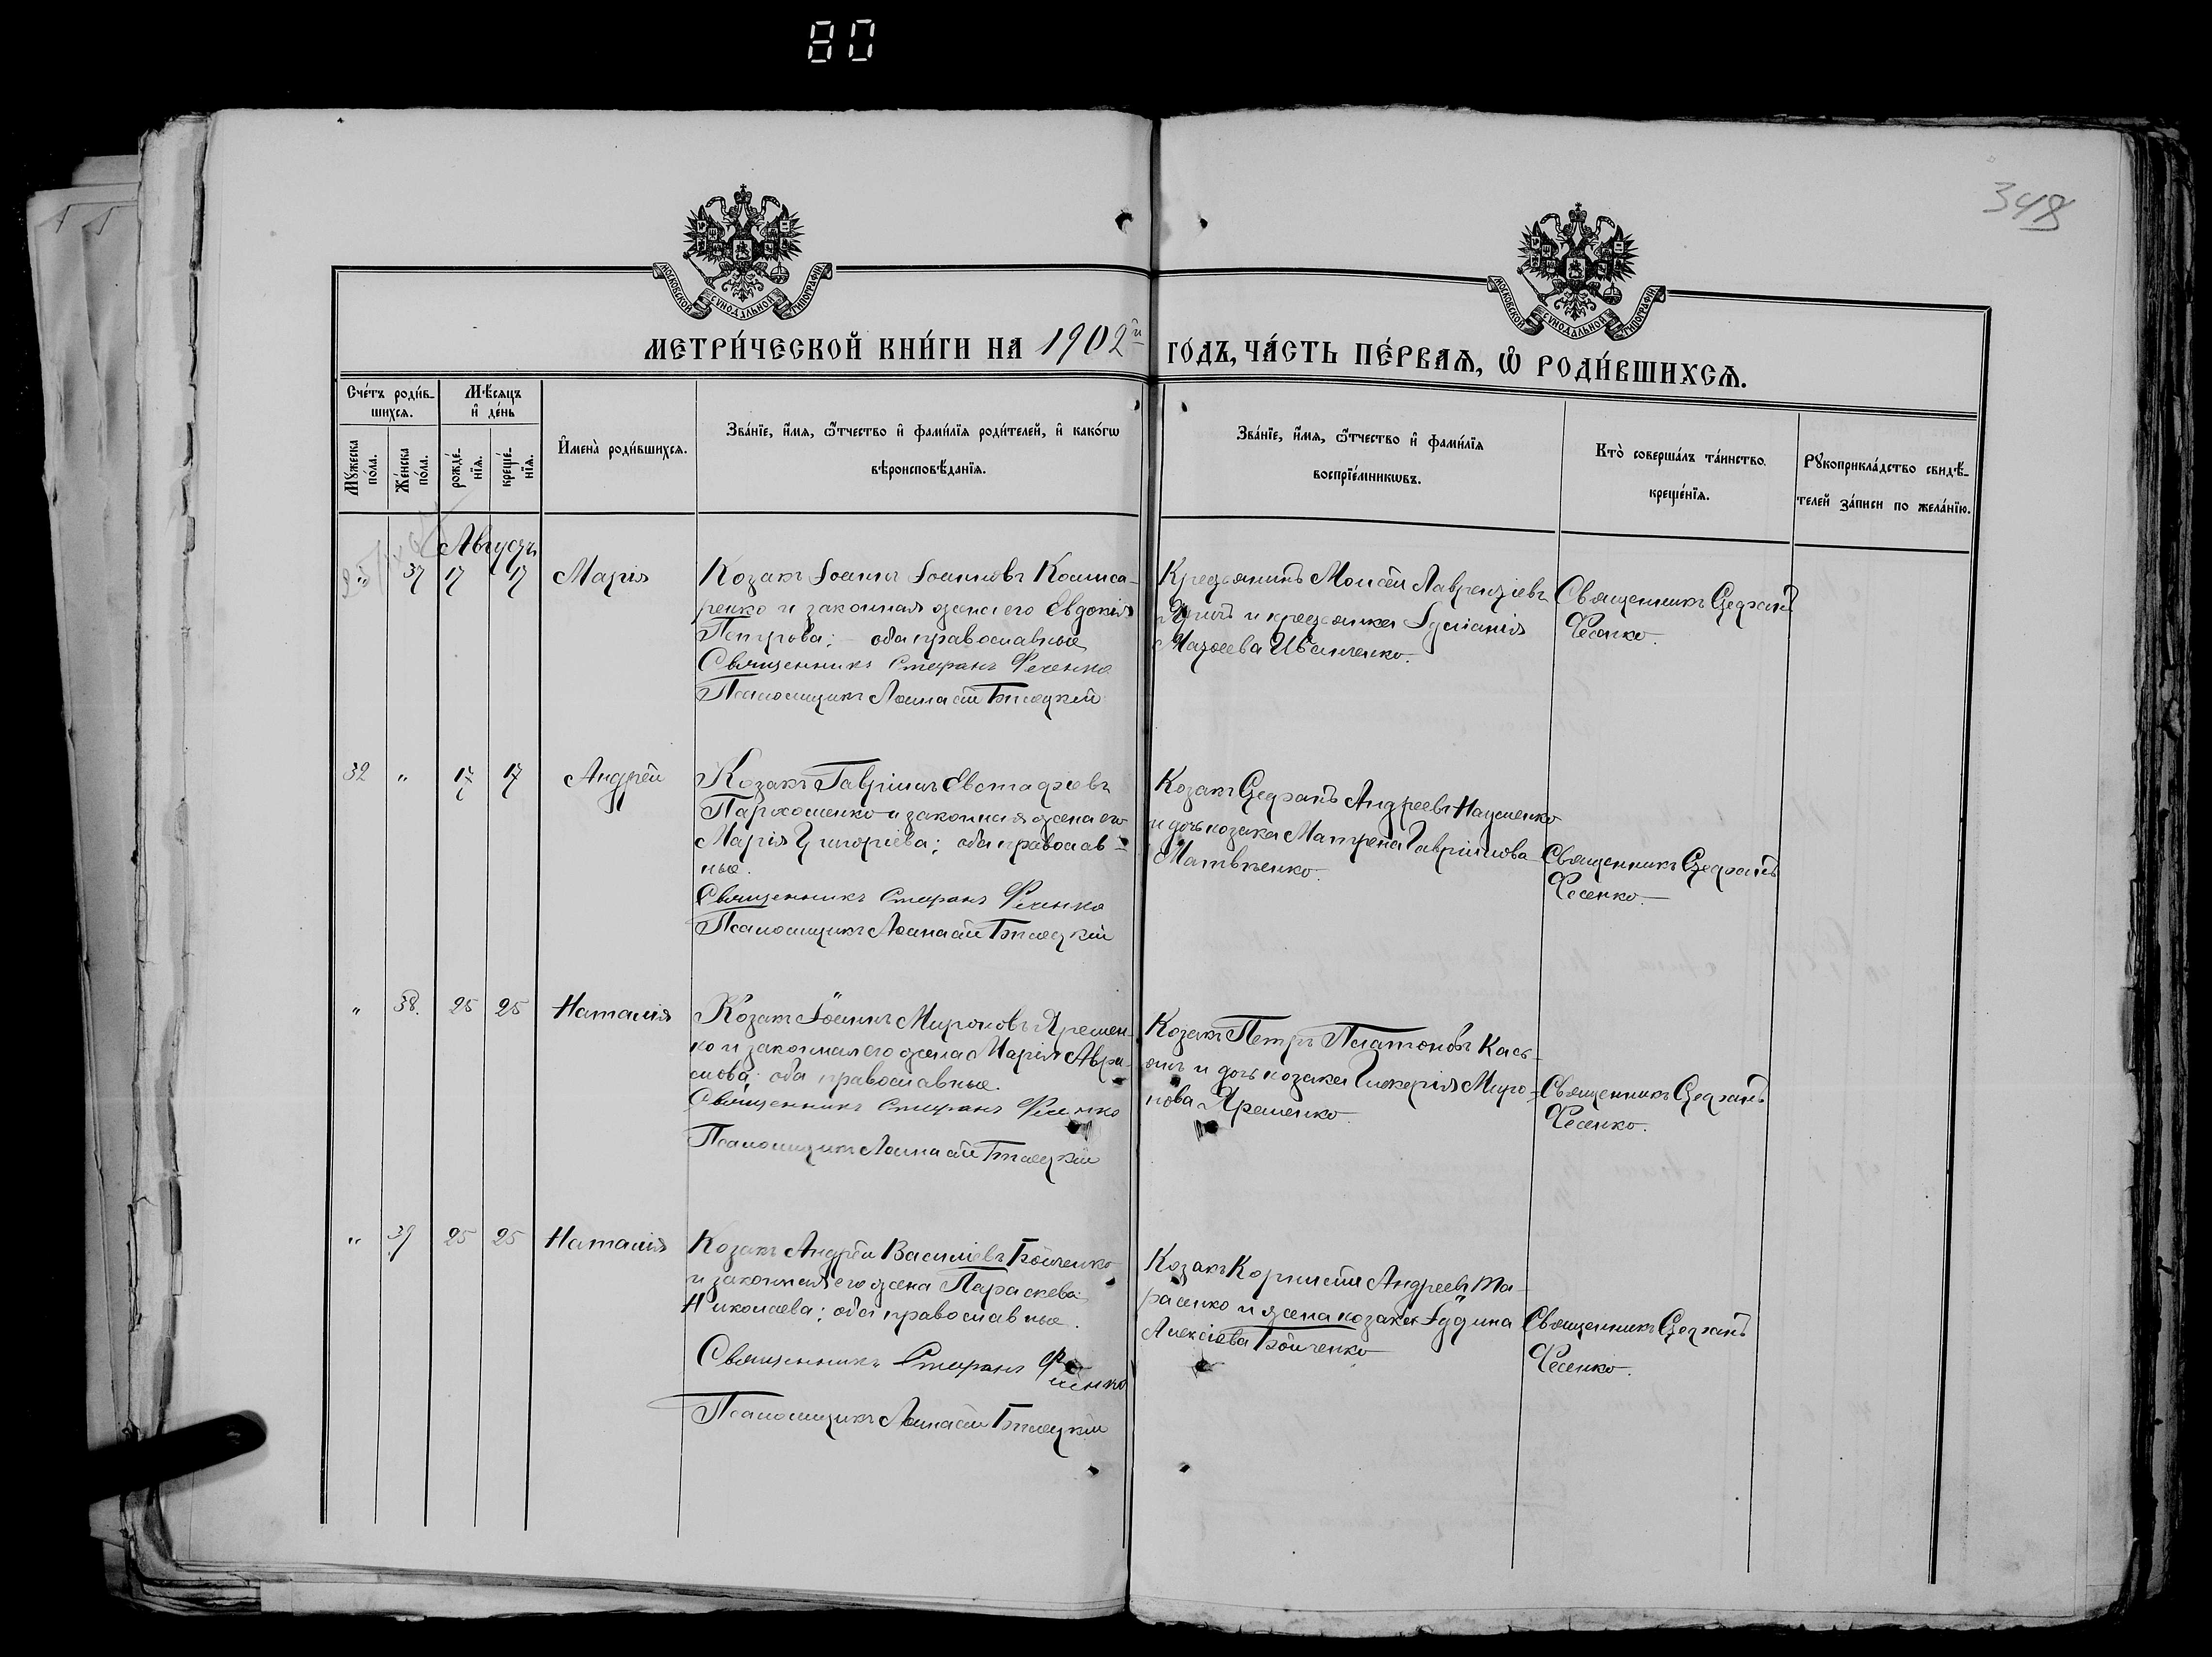 80
348
МОСКОВСКОЙ СѴНОДАЛЬНОЙ ТИПОГРАФІИ
МОСКОВСКОЙ СѴНОДАЛЬНОЙ ТИПОГРАФІИ
МЕТРИ́ЧЕСКОЙ КНИ́ГИ НА 1902й ГО́ДЪ, ЧА́СТЬ ПЕ́РВАѦ, Ѡ РОДИ́ВШИХСѦ.
Сче́тъ роди́в-
шихсѧ.
Мѣ́сѧцъ
и де́нь
Мꙋ́жеска
по́ла.
Же́нска
по́ла.
рожде́-
нїѧ.
креще́-
нїѧ.
И҆мена̀ роди́вшихсѧ.
Зва́нїе, и҆́мѧ, ѻ҆́тчество и҆ фами́лїѧ роди́телей, и҆ како́гѡ
вѣроисповѣ́данїѧ.
Зва́нїе, и҆́мѧ, ѻ҆́тчество и҆ фами́лїѧ
воспрїе́мникѡвъ.
Кто̀ соверша́лъ та́инство
креще́нїѧ.
Рꙋкоприкла́дство свидѣ́-
телей за́писи по жела́нїю.
Августъ
" 37 17 17 Марія
Козакъ Іоаннъ Іоанновъ Комиса-
ренко и законная жена его Евдокія
Петрова; оба православные
Священникъ Стефанъ Фесенко
Псаломщикъ Аѳанасій Бѣлецкій
Крестьянинъ Моисей Лаврентіевъ
и крестьянка Іуліанія
Иванченко.
Священникъ Стефанъ
Фесенко.
32 " 17 17 Андрей
Козакъ Гавріилъ Евстафіевъ
Пархоменко и законная жена его
Марія Григоріева; оба православ-
ные.
Священникъ Стефанъ Фесенко
Псаломщикъ Аѳанасій Бѣлецкій
Козакъ Стефанъ Андреевъ Науменко
и дочь козака Матрена Гавріилова
Матвѣенко.
Священникъ Стефанъ
Фесенко.
" 38. 25 25 Наталія
Козакъ Іоаннъ Мироновъ Яремен-
ко и законная его жена Марія Авра-
мова; оба православные.
Священникъ Стефанъ Фесенко
Псаломщикъ Аѳанасій Бѣлецкій
Козакъ Петръ Платоновъ Кась-
янъ и дочь козака Гликерія Миро-
нова Яременко.
Священникъ Стефанъ
Фесенко.
" 39 25 25 Наталія
Козакъ Андрей Василіевъ Бойченко
и законная его жена Параскева
Николаева; оба православные.
Священникъ Стефанъ Фесенко
Псаломщикъ Аѳанасій Бѣлецкій
Козакъ Корнилій Андреевъ Та-
расенко и жена козака Іустина
Алексіева Бойченко
Священникъ Стефанъ
Фесенко.